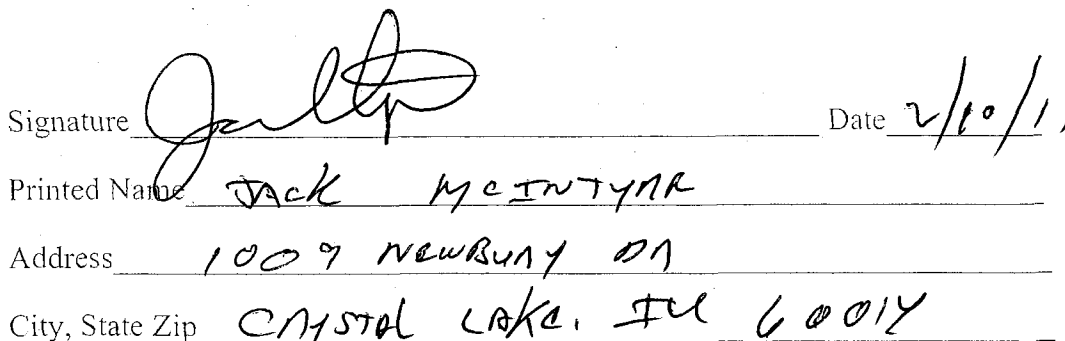 Signature Date 2/10/1
Printed Name JACK MCINTYRE
Address 1009 NEWBURY DR
City, State Zip CRYSTAL LAKE, ILL 60014